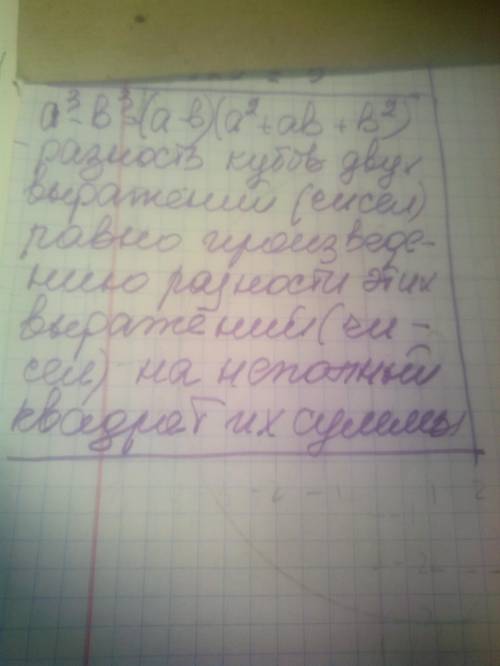 a³-b³=(a-b)(a²+ab+b²)
разность кубов двух
выражений (чисел)
равно произведе-
нию разности этих
выражений (чи-
сел) на неполный
квадрат их суммы